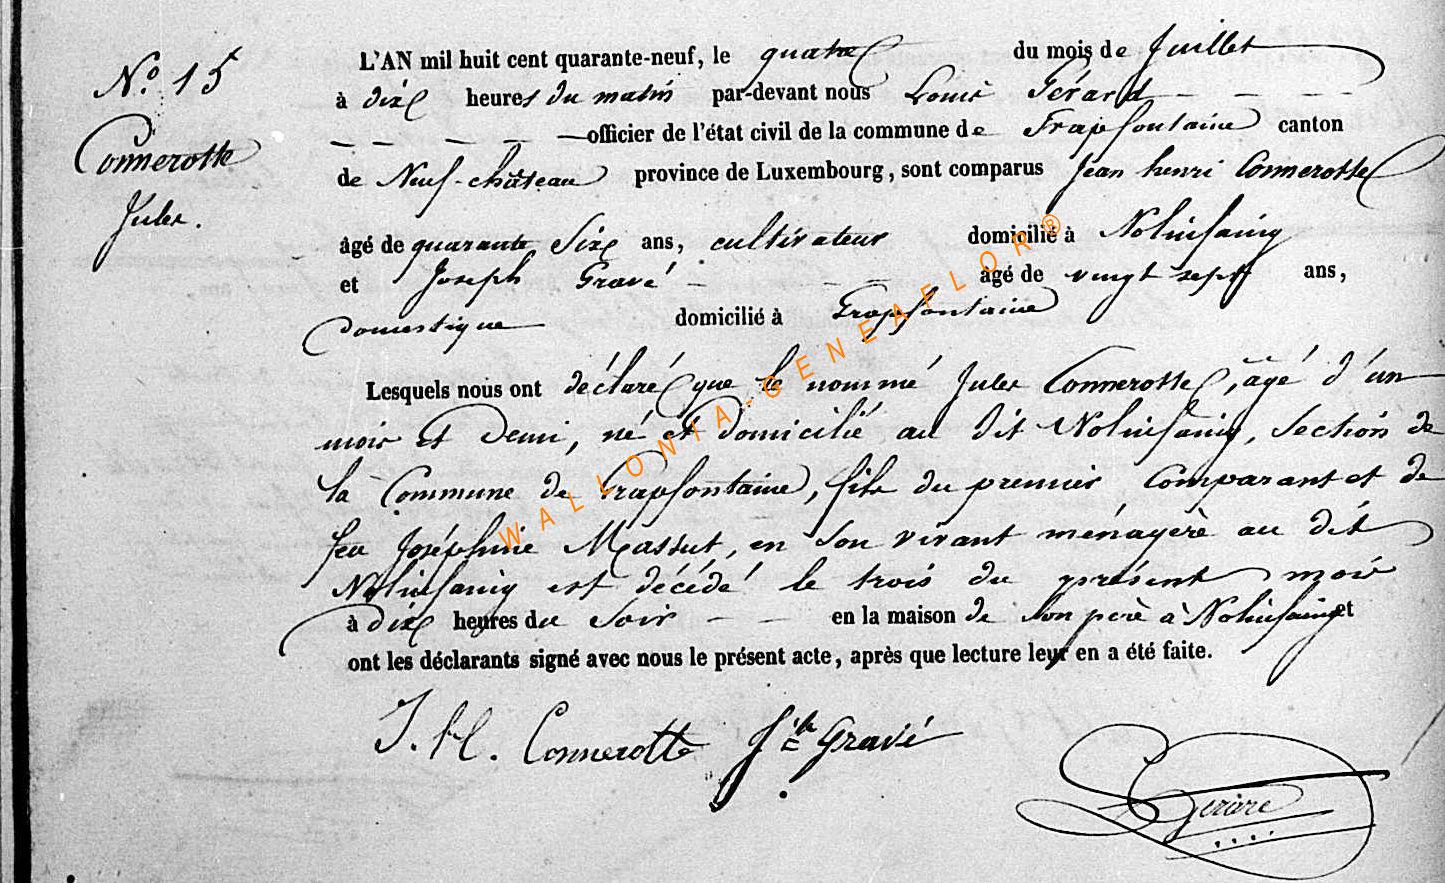 N.º 15
Connerotte
Jules.
L'AN mil huit cent quarante-neuf, le quatre du mois de Juillet
à dix heures du matin par-devant nous Louis Gérard
officier de l'état civil de la commune de Grapfontaine canton
de Neuf-château province de Luxembourg, sont comparus Jean henri Connerotte
âgé de quarante Six ans, cultivateur domicilié à Nolinfaing
et Joseph Gravé âgé de vingt sept ans,
Domestique domicilié à Grapfontaine
Lesquels nous ont déclaré que le nommé Jules Connerotte, âgé d'un
mois et Demi, né et domicilié au dit Nolinfaing, Section de
la Commune de Grapfontaine, fils du premier Comparant et de
feu Joséphine Massut, en Son vivant ménagère au dit
Nolinfaing est décédé le trois du présent mois
à dix heures du Soir en la maison de Son père à Nolinfaing et
ont les déclarants signé avec nous le présent acte, après que lecture leur en a été faite.
J. H. Connerotte J. Gravé
WALLONIA-GENEAFLOR®